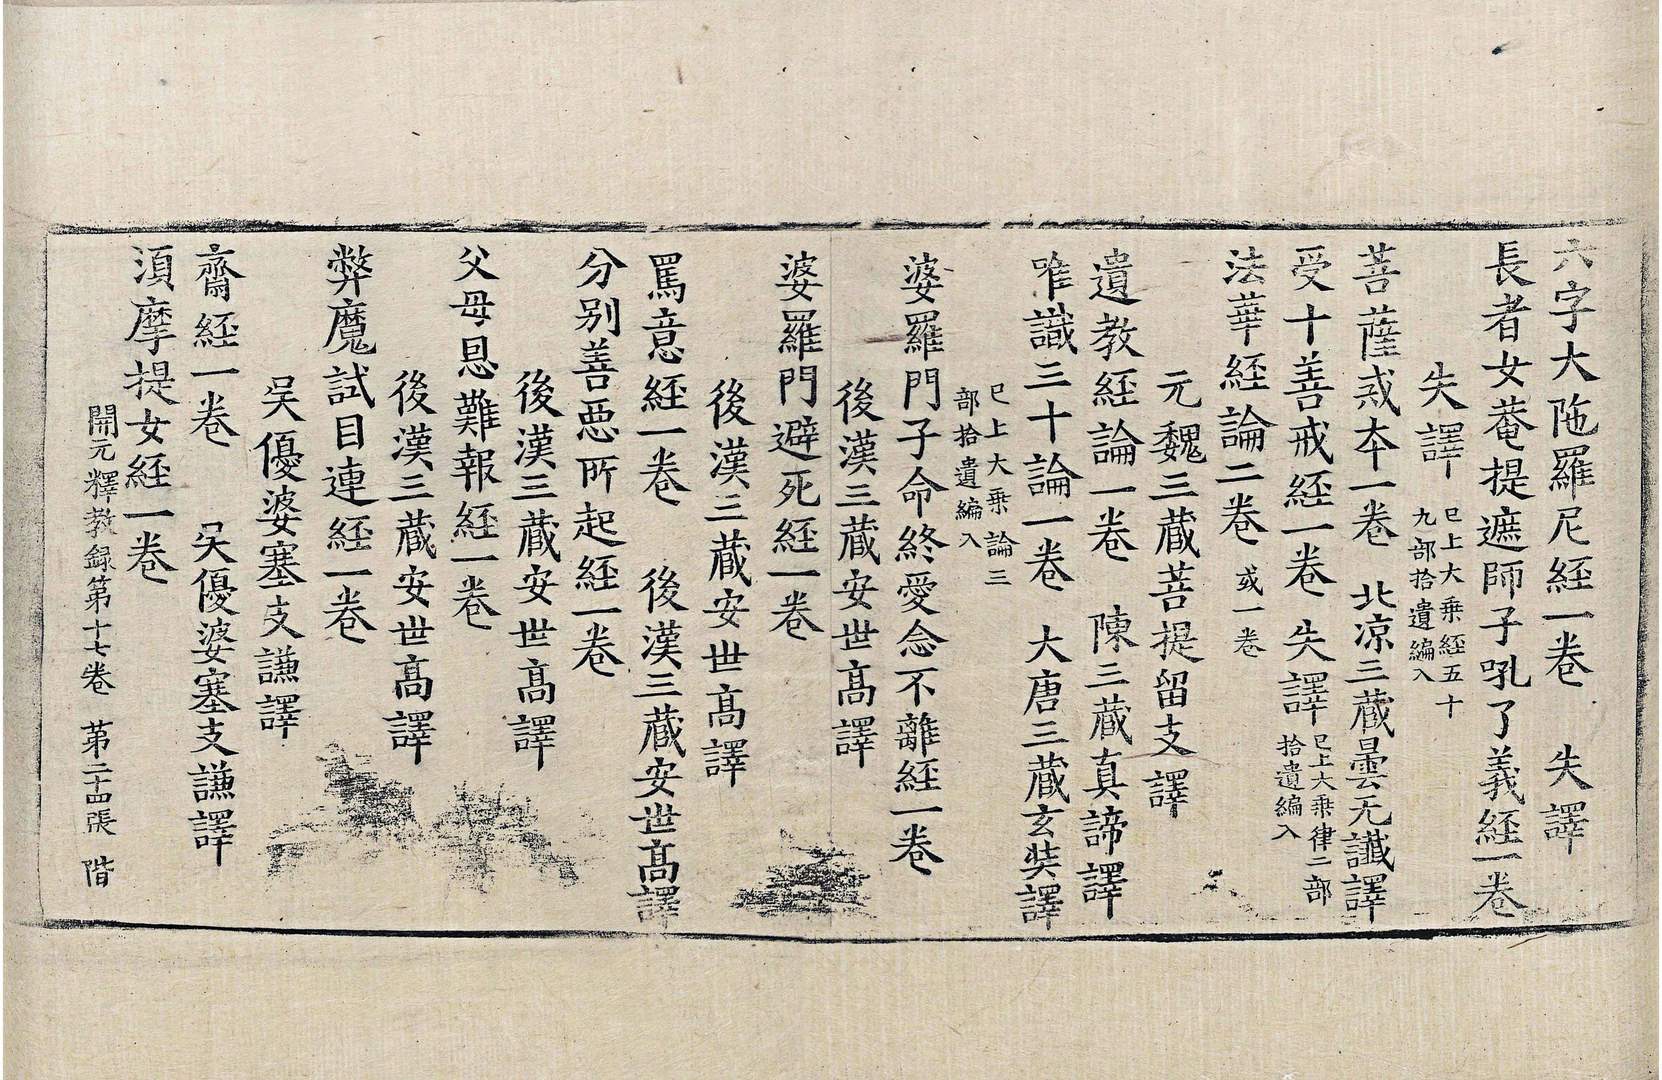 六字大陁羅尼経一卷　失譯
長者女菴提遮師子吼了義経一卷
失譯　已上大乗経五十九部拾遺編入
菩薩戒夲一卷　北涼三藏曇无讖譯
受十善戒経一卷　失譯　已上大乗律二部拾遺編入
法華経論二卷　或一卷
元魏三藏菩提留支譯
遺教経論一卷　陳三藏真諦譯
唯識三十論一卷　大唐三藏玄奘譯
已上大乗論三部拾遺編入
婆羅門子命終愛念不離経一卷
後漢三藏安世高譯
婆羅門避死経一卷
後漢三藏安世髙譯
罵意経一卷　後漢三藏安世髙譯
分别善惡所起経一卷
後漢三藏安世高譯
父母恩難報経一卷
後漢三藏安世髙譯
弊魔試目連経一卷
吴優婆塞支謙譯
齋経一卷　吴優婆塞支謙譯
湏摩提女経一卷
開元釋教録第十七卷　第二十四張　階